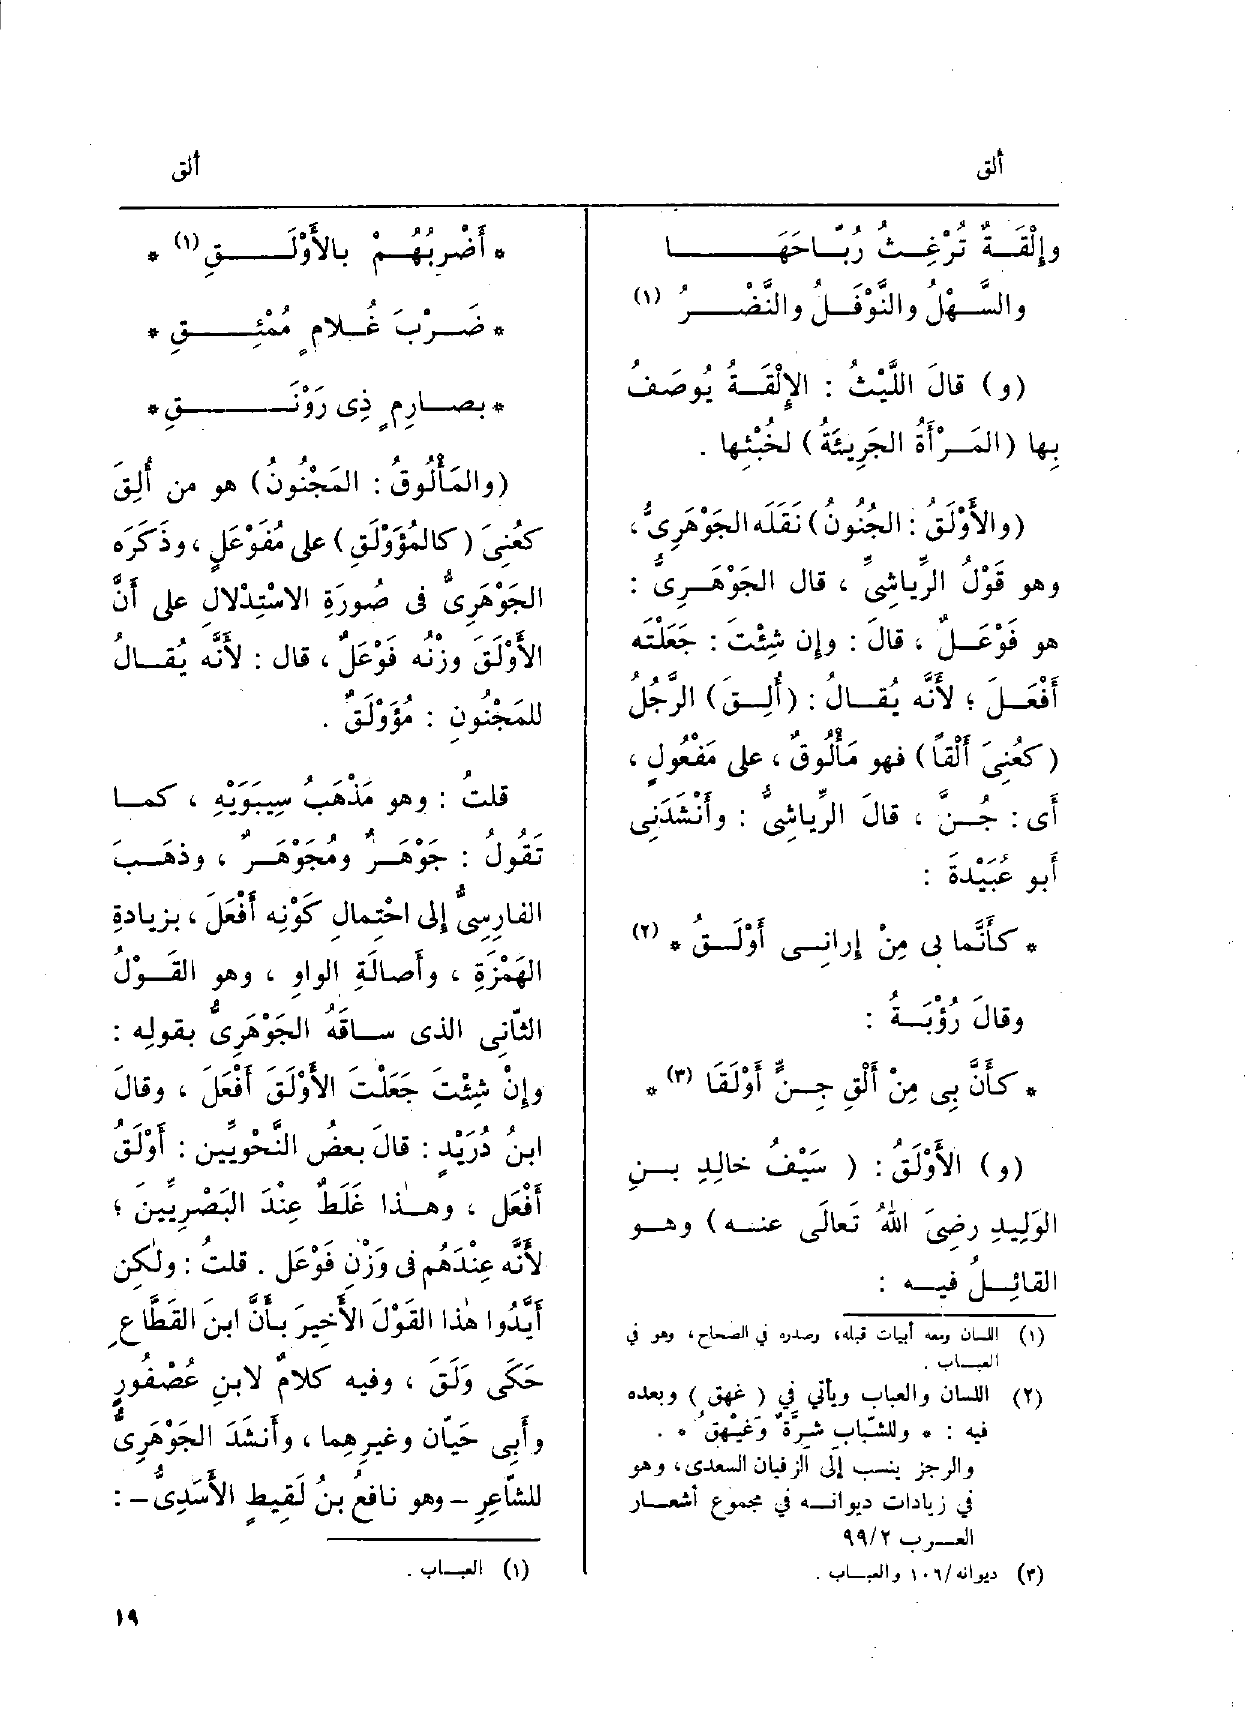 ألق
ألق
وإِلْقَةٌ تُرْغِثُ رُبَّاحَهَا
والسَّهْلُ والنَّوْفَلُ والنَّضْرُ (١)
(و) قالَ اللَّيْثُ : الإِلْقَةُ يُوصَفُ
بِها (المَرْأَةُ الجَرِيئَةُ) لخُبْثِها .
(والأَوْلَقُ : الجُنُونُ) نَقَلَه الجَوْهَرِىُّ ،
وهو قَوْلُ الرِّياشِىِّ ، قال الجَوْهَرِىُّ :
هو فَوْعَلٌ ، قالَ : وإِن شِئْتَ : جَعَلْتَه
أَفْعَلَ ؛ لأَنَّه يُقالُ : (أُلِقَ) الرَّجُلُ
(كعُنِىَ أَلْقاً) فهو مَأْلُوقٌ ، على مَفْعُولٍ ،
أى : جُنَّ ، قالَ الرِّياشِىُّ : وأَنْشَدَنِى
أبو عُبَيْدَةَ :
* كأَنَّما بى مِنْ إرانِى أَوْلَقُ * (٢)
وقالَ رُؤْبَةُ :
* كأَنَّ بِى مِنْ أَلْقِ جِنٍّ أَوْلَقَا (٣) *
(و) الأَوْلَقُ : ( سَيْفُ خالِدِ بنِ
الوَلِيدِ رضِىَ اللهُ تَعالَى عنه ) وهو
القائِلُ فيه :
(١) اللسان ومعه أبيات قبله، وصدره في الصحاح، وهو في
العباب .
(٢) اللسان والعباب ويأتي في ( غهق ) وبعده
فيه : * وللشَّبابِ شِرَّةٌ وَغَيْهَقُ * .
والرجز ينسب إلى الزفيان السعدى، وهو
في زيادات ديوانه في مجموع أشعار
العرب ٩٩/٢
(٣) ديوانه/١٠٦ والعباب .
* أَضْرِبُهُمْ بالأَوْلَقِ (١) *
* ضَرْبَ غُلامٍ مُمْئِقِ *
* بصارِمٍ ذِى رَوْنَقِ *
(والمَأْلُوقُ : المَجْنُونُ) هو من أُلِقَ
كعُنِىَ (كالمُؤَوْلَقِ) على مُفَوْعَلٍ ، وذَكَرَه
الجَوْهَرِىُّ فى صُورَةِ الاسْتِدْلالِ على أَنَّ
الأَوْلَقَ وزنُه فَوْعَلٌ ، قال : لأَنَّه يُقالُ
للمَجْنُونِ : مُؤَوْلَقٌ .
قلتُ : وهو مَذْهَبُ سِيبَوَيْهِ ، كما
تَقولُ : جَوْهَرٌ ومُجَوْهَرٌ ، وذهَبَ
الفارِسِىُّ إلى احْتِمالِ كَوْنِه أَفْعَلَ ، بزيادةِ
الهَمْزَةِ ، وأَصالَةِ الواوِ ، وهو القَوْلُ
الثّانِى الذى ساقَهُ الجَوْهَرِىُّ بقوله :
وإِنْ شِئْتَ جَعَلْتَ الأَوْلَقَ أَفْعَلَ ، وقالَ
ابنُ دُرَيْدٍ : قالَ بعضُ النَّحْوِيِّين : أَوْلَقُ
أَفْعَل ، وهٰذا غَلَطٌ عِنْدَ البَصْرِيِّينَ ؛
لأَنَّه عِنْدَهُم فى وَزْنِ فَوْعَل . قلتُ : ولٰكن
أَيَّدُوا هٰذا القَوْلَ الأَخِيرَ بأَنَّ ابنَ القَطّاعِ
حَكَى وَلَقَ ، وفيه كلامٌ لابنِ عُصْفُورٍ
وأَبِى حَيّان وغيرِهِما ، وأَنشَدَ الجَوْهَرِىُّ
للشّاعِرِ - وهو نافعُ بنُ لَقِيطٍ الأَسَدِىُّ - :
(١) العباب .
١٩